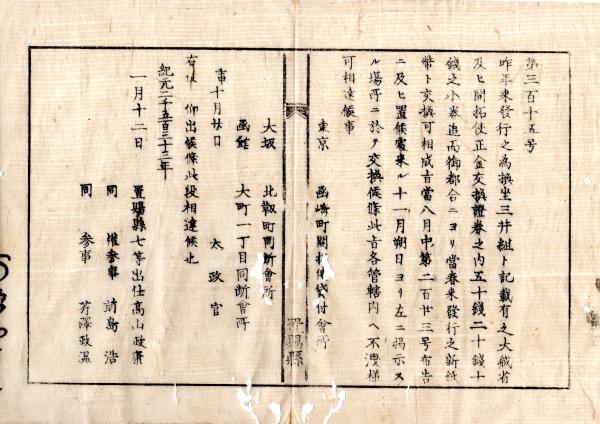 第三百十五号
昨年来發行之為換坐三井組ト記載有之大蔵省
及ヒ開拓使正金交換證券之内五十錢二十錢十
錢之小券追而御都合ニヨリ當春来發行之新紙
幣ト交換可相成旨當八月中第二百廿三号布告
ニ及ヒ置候處来ル十一月朔日ヨリ左ニ掲示ス
ル場所ニ於テ交換候條此旨各管轄内ヘ不洩様
可相達候事
東京 函崎町開拓使貸付會所
置賜縣
大坂 北靱町同断會所
函館 大町一丁目同断會所
壬申十月廿日 太政官
右之通 仰出候條此段相達候也
紀元二千五百三十三年
一月十二日 置賜縣七等出仕高山政康
同 権参事 前島 浩
同 参事 芹澤政温